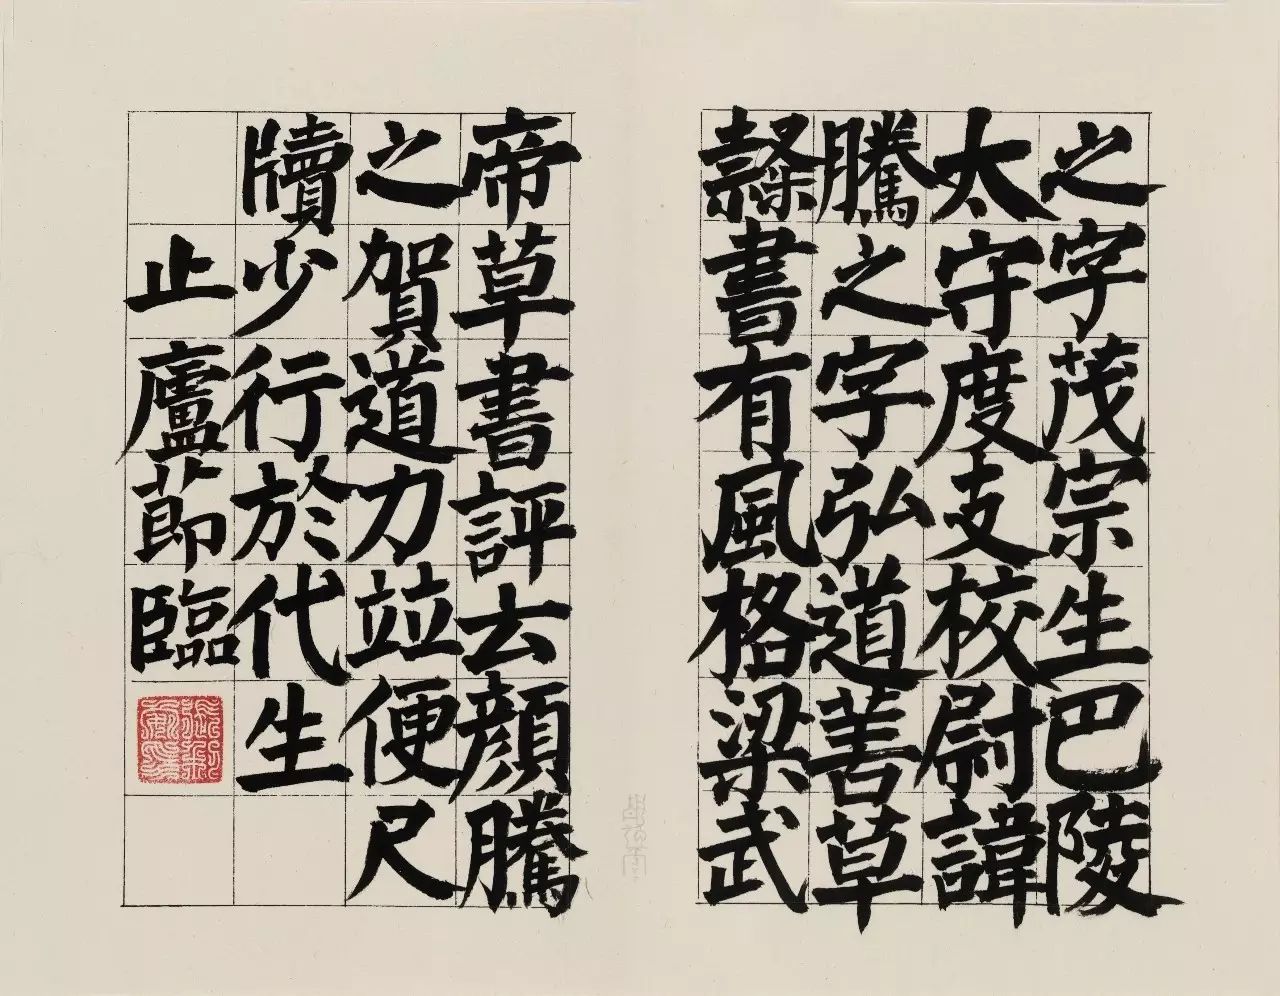 之字茂宗生巴陵
太守度支校尉諱
騰之字弘道善草
隸書有風格梁武
帝草書評云顏騰
之賀道力並便尺
牘少行於代生
止廬節臨